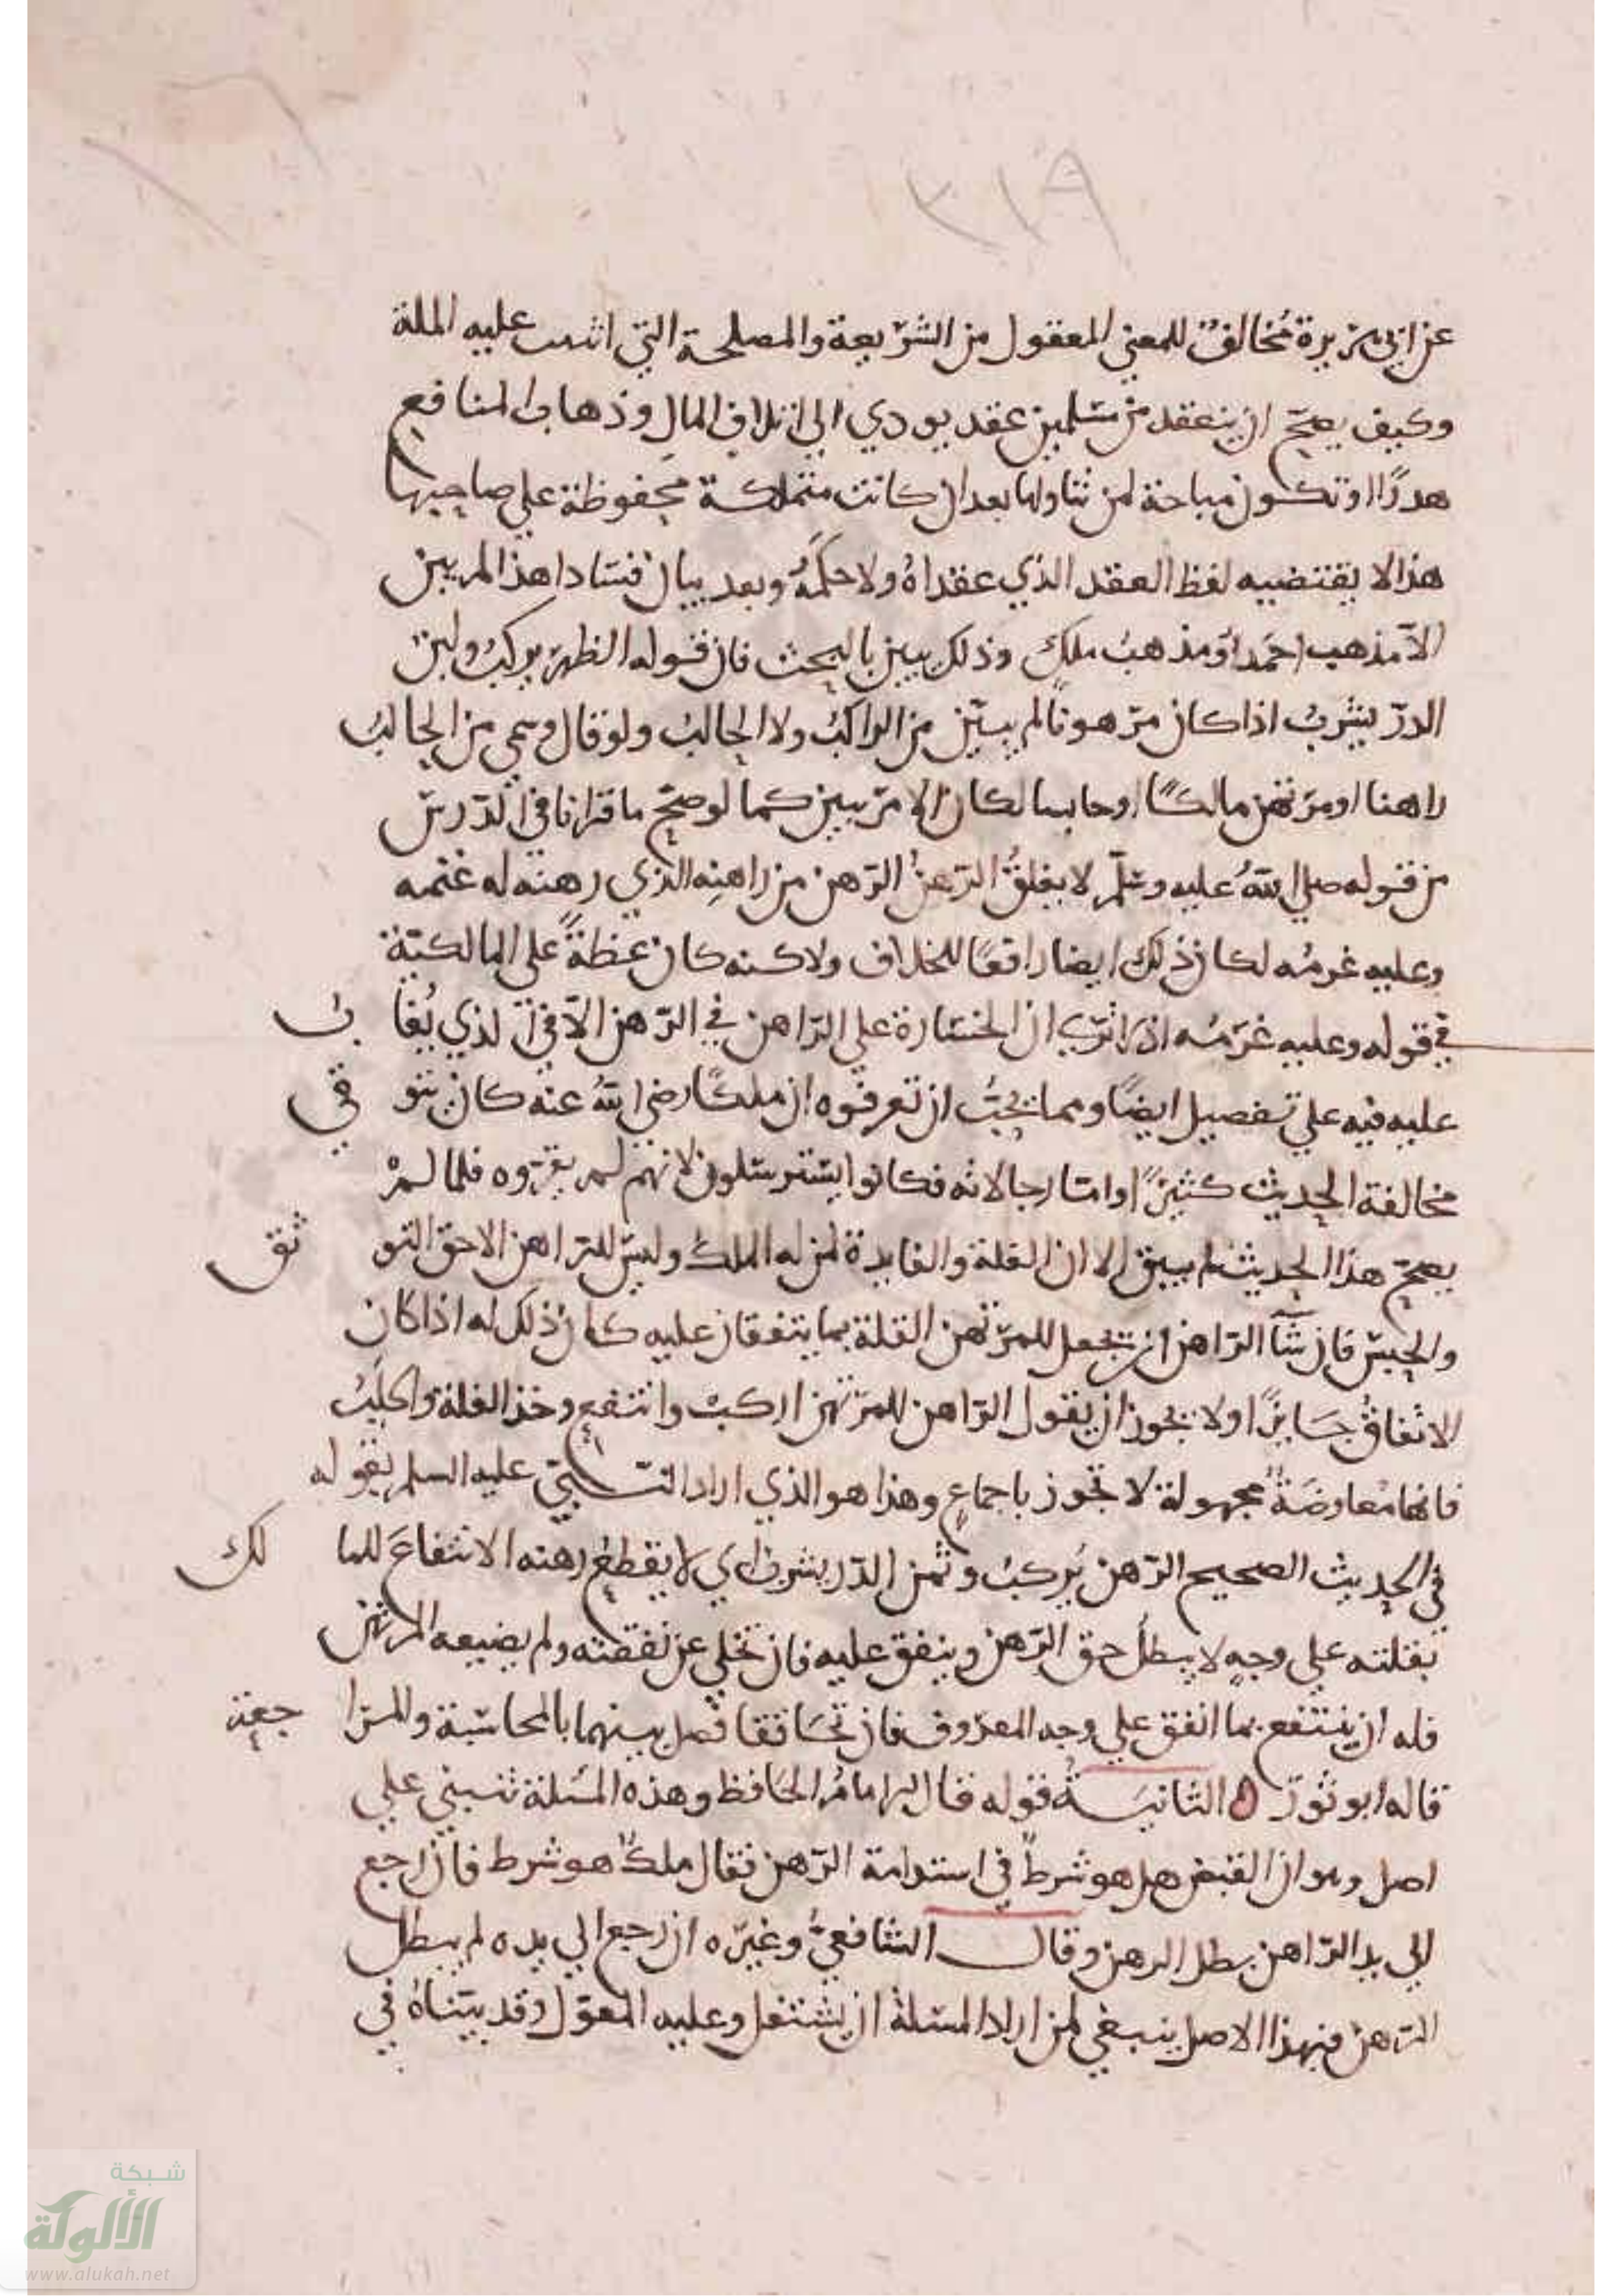 ٣١٩
عن ابي هريرة مخالفٌ للمعنى المعقول من الشريعة والمصلحة التي عليه الملة
وكيف يصح ان ينعقد من مسلمين عقد يودي الى اتلاف المال وذهاب المنافع
هدرًا او تكون مباحة لمن تناولها بعد ان كانت متملكة محفوظة على صاحبها
هذا لا يقتضيه لفظ العقد الذي عقداهُ ولا حكمهُ وبعد بيان فساد هذا لم يبين
الا مذهب احمد او مذهب ملك وذلك يبين بالبحث فان قوله الظهر يركب ولبن
الدر يشرب اذا كان مرهونًا لم يبيّن من الراكبُ ولا الحالبُ ولو قال وسمي من الحالبُ
راهنا او مرتهن مالكًا او حابسا لكان الامر يبين كما لو صح ما قرانا في الدرس
من قوله صلى اللهُ عليه وسلم لا يغلقُ الرهنُ الرهن من راهنِه الذي رهنه له غنمه
وعليه غرمُه لكان ذلك ايضا رافعًا للخلاف ولاكنه كان عظةً على المالكيّة
في قوله وعليه غرمُه اذ اترى ان الخسارة على الراهن في الرهن الا في الذي يُغا بُ
عليه فيه على تفصيل ايضًا ومما يجبُ ان تعرفوه ان ملكًا رضي اللهُ عنه كان يتو قى
مخالفة الحديث كثيرًا واما رجالاته فكانوا يسترسلون لانهم لم يقرؤه فلما لمْ
يصح هذا الحديث لم يبق الا ان الغلة والفايدة لمن له الملك وليس للراهن الا حق التو ثق
والحبس فان شآ الراهن ان يجعل للمرتهن الغلة بما يتفقان عليه كان ذلك له اذا كان
الاتفاقُ جايزًا ولا يجوز ان يقول الراهن للمرتهن اركبْ وانتفع وخذ الغلة واحلبُ
فانها معاوضَةٌ مجهولة لا تجوز باجماعٍ وهذا هو الذي اراد النبيّ عليه السلم بقوله
في الحديث الصحيح الرهن يُركبُ و الدر يشرب اي لا يقطعُ رهنه الانتفاعَ للما لك
بغلته على وجهٍ لا يبطلُ حق الرهن وينفق عليه فان تخلى عن نفقته ولم يضيعه المرتهن
فله ان ينتفع بما انفق على وجه المعروف فان تحاققا فصل بينهما بالمحاسبة والمرا جعة
قاله ابو ثورٍ ه الثانيــةُ قوله قال الامامُ الحافظ وهذه المسئلة تنبني على
اصل وهو ان القبض هل هو شرطٌ في استدامة الرهن فقال ملكٌ هو شرط فان رجع
الى يد الراهن بطل الرهن وقال الشافعيُّ وغيره ان رجع الى يده لم يبطل
الرهن فبهذا الاصل ينبغي لمن اراد المسئلة ان يشتغل وعليه المعوّل وقد بيّناهُ في
شبكة
الألوكة
www.alukah.net